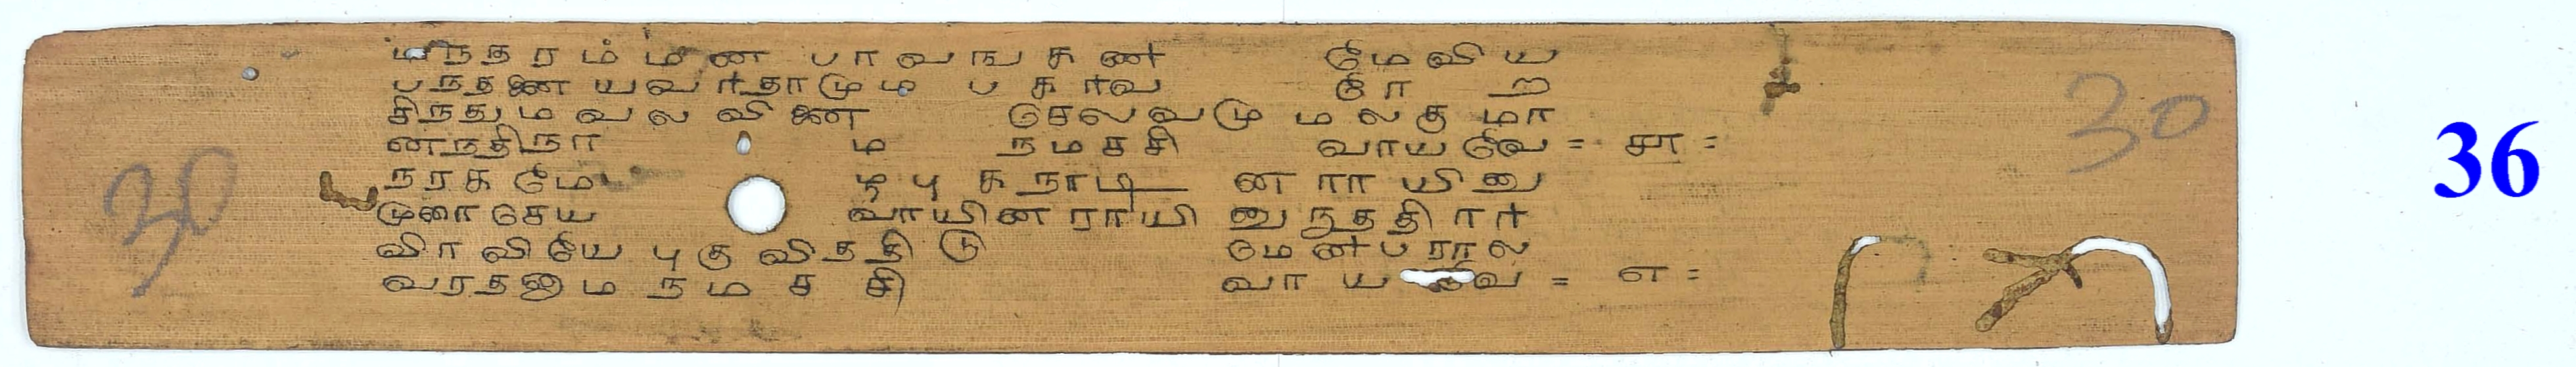 மநதரம மன பாவஙகண மேவிய
பநதனை யவரதாமும பகரவ ரேற
சிநதும வலவினை செலவமு மலகுமா
னநதிநா ம நமசசி வாயவே = ௬ =
நரகமே ழபுகநாடி னராயினு
முரைசெய வாயினராயி னுருததிரர
விரவியே புகுவிததிடு மெனபரால
வரதனாம நமசசி வாயவே = ௭ =
30
30
36